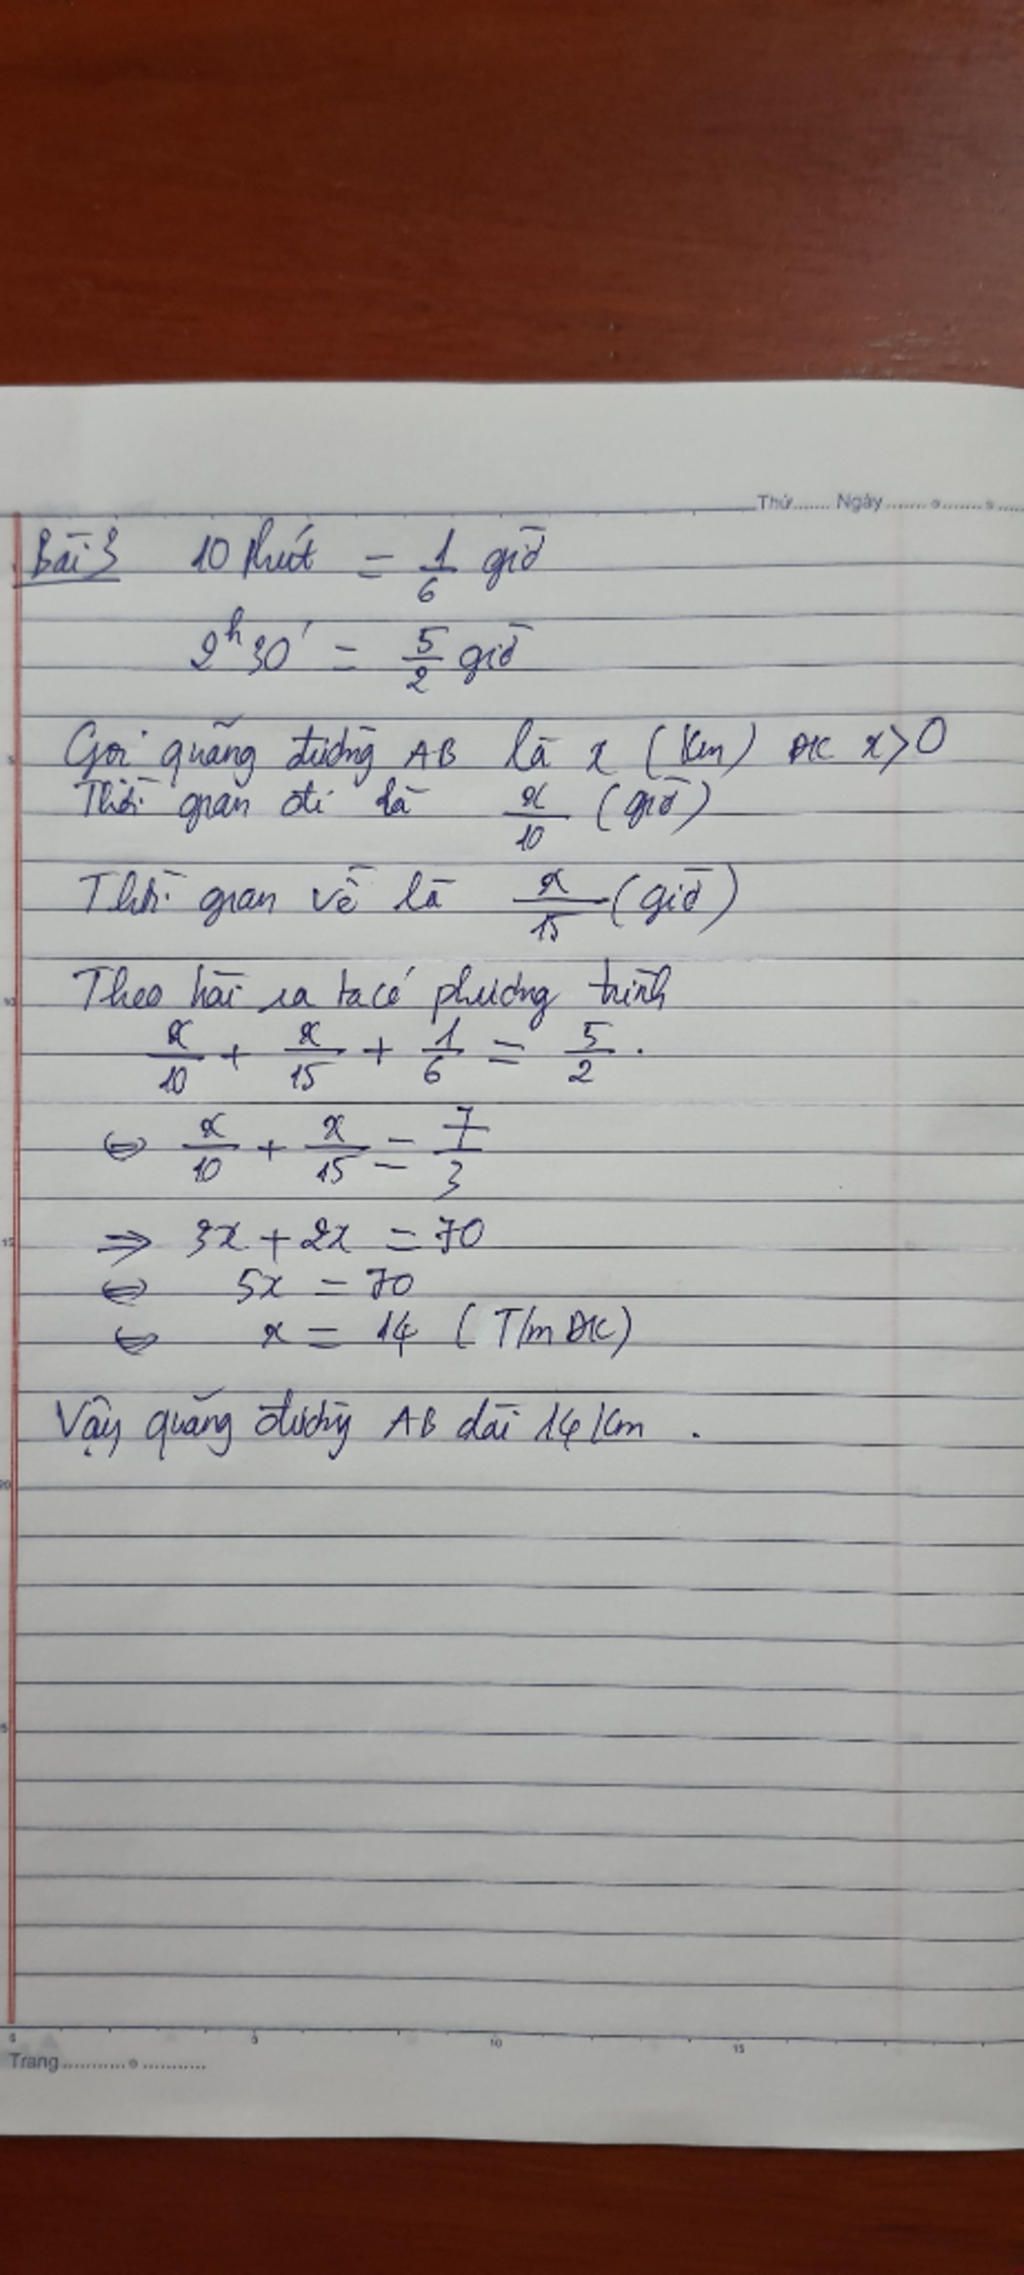 Thứ....... Ngày
Bài 3 10 phút = 1/6 giờ
2h30' = 5/2 giờ
Gọi quãng đường AB là x (km) ĐK x>0
Thời gian đi là x/10 (giờ)
Thời gian về là x/15 (giờ)
Theo bài ra ta có phương trình
x/10 + x/15 + 1/6 = 5/2.
⇔ x/10 + x/15 = 7/3
⇒ 3x + 2x = 70
⇔ 5x = 70
⇔ x = 14 (T/m ĐK)
Vậy quãng đường AB dài 14 km.
5 10 15
Trang